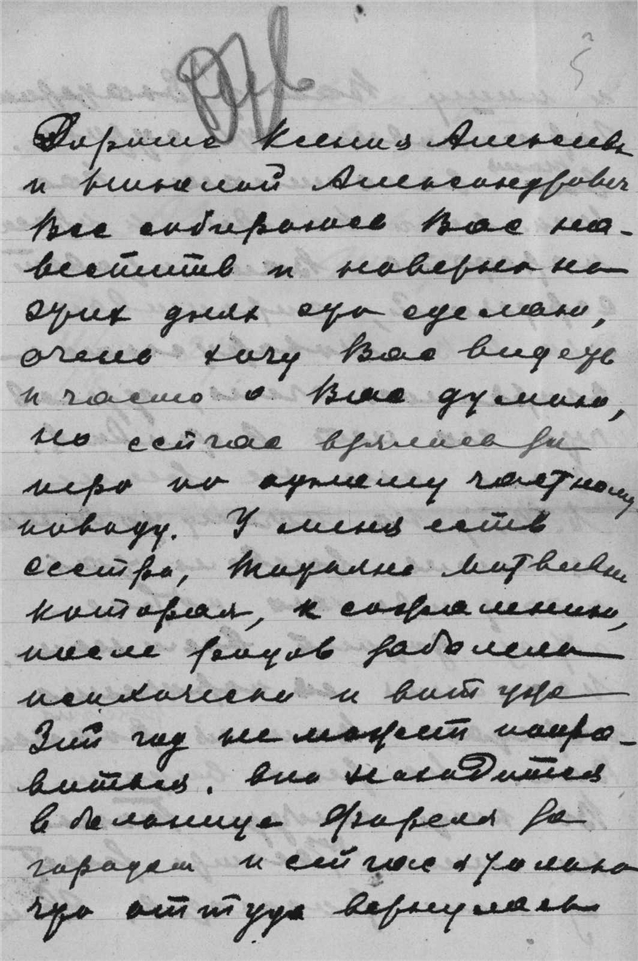 Дорогие Ксения Алексеевн
и Николай Александрович
Все собираюсь Вас на-
вестить и наверно на
этих днях это сделаю,
очень хочу Вас видеть
и часто о Вас думаю,
но сейчас взялась за
перо по одному частному
поводу. У меня есть
сестра, Татьяна Матвеевн
которая, к сожалению,
после родов заболела
психически и вот уже
3ий год не может попра-
виться. Она находится
в больнице Фореля за
городом и сейчас я только
что оттуда вернулась